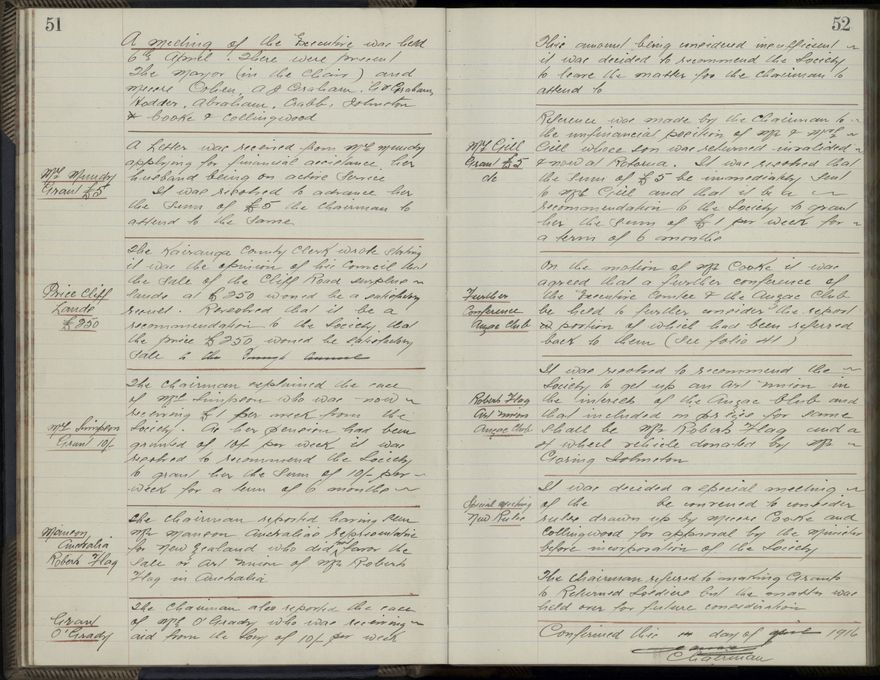 51
A meeting of the Executive was held
6th April. There were present
The Mayor (in the Chair) and
Messrs Cohen, A J Graham,
Hodder, Abraham, Crabb, Johnston
& Cooke & Collingwood
Mrs Mundy
Grant £5
A Letter was received from Mrs Mundy
applying for financial assistance, her
husband being on active service
It was resolved to advance her
the sum of £5 the Chairman to
attend to the same
Price Cliff
Lands
£250
The Kairanga County Clerk wrote stating
it was the opinion of his Council that
the sale of the Cliff Road surplus
lands at £250 would be a satisfactory
. Resolved that it be a
recommendation to the Society that
the price £250 would be satisfactory
sale to the
Mrs Simpson
Grant 10/-
The Chairman explained the case
of Mrs Simpson who was now
receiving £1 per week from the
Society. As her pension had been
granted of 10/- per week it was
resolved to recommend the Society
to grant her the sum of 10/- per
week for a term of 6 months
Manson
Australia
Roberts Flag
The Chairman reported having seen
Mr Manson Australia's representative
for New Zealand who did not favor the
sale or Art Union of Mr Roberts
Flag in Australia
Grant
O'Grady
The Chairman also reported the case
of Mrs O'Grady who was receiving
aid from the Soy of 10/- per week
52
This amount being considered insufficient
it was decided to recommend the Society
to leave the matter for the Chairman to
attend to
Mrs Gill
Grant £5
do
Reference was made by the Chairman to
the unfinancial position of Mr & Mrs
Gill whose son was returned invalided
& now at Rotorua. It was resolved that
the sum of £5 be immediately sent
to Mrs Gill and that it be a
recommendation to the Society to grant
her the sum of £1 per week for
a term of 6 months
Further
Conference
Anzac Club
On the motion of Mr Cooke it was
agreed that a further conference of
the Executive Comtee & the Anzac Club
be held to further consider the report
portion of which had been referred
back to them (See folio 41)
Roberts Flag
Art Union
Anzac Club
It was resolved to recommend the
Society to get up an Art Union in
the interests of the Anzac Club and
that included in prizes for same
shall be Mr Roberts Flag and a
4 wheel vehicle donated by Mr
Goring Johnston
Special Meeting
New Rules
It was decided a special meeting
of the be convened to consider
rules drawn up by Messrs Cooke and
Collingwood for approval by the Minister
before incorporation of the Society
The Chairman referred to making Grants
to Returned Soldiers but the matter was
held over for future consideration
Confirmed this day of 1916
Chairman